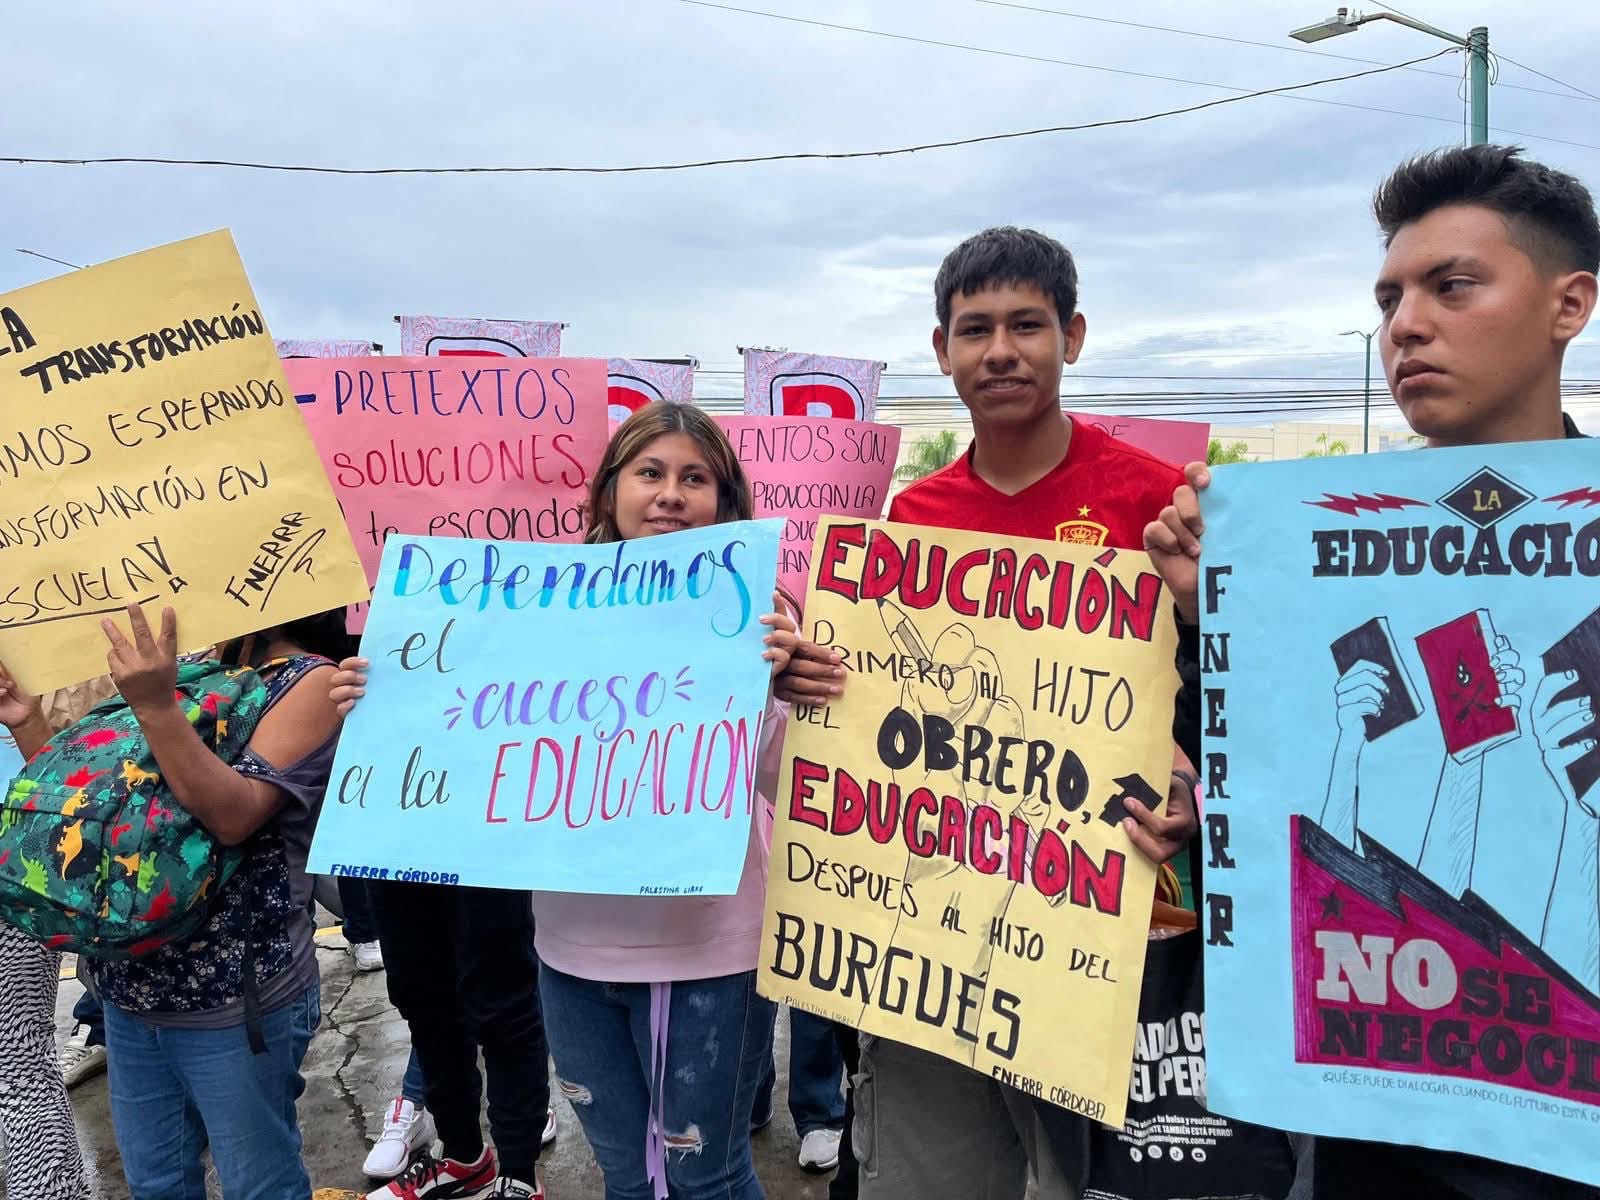 LA
TRANSFORMACIÓN
ESPERANDO
TRANSFORMACIÓN EN
ESCUELA!
FNERRR
- PRETEXTOS
SOLUCIONES
te esconda
Defendamos
el
acceso
a la EDUCACIÓN
FNERRR CÓRDOBA
PALESTINA LIBRE
LENTOS SON,
PROVOCAN LA
DE
EDUCACIÓN
PRIMERO AL HIJO
DEL OBRERO,
EDUCACIÓN
DESPUES AL HIJO DEL
BURGUÉS
PALESTINA LIBRE
FNERRR CÓRDOBA
FNERRR
LA
EDUCACIO
NO SE
NEGOCI
¿QUÉ SE PUEDE DIALOGAR CUANDO EL FUTURO ESTÁ